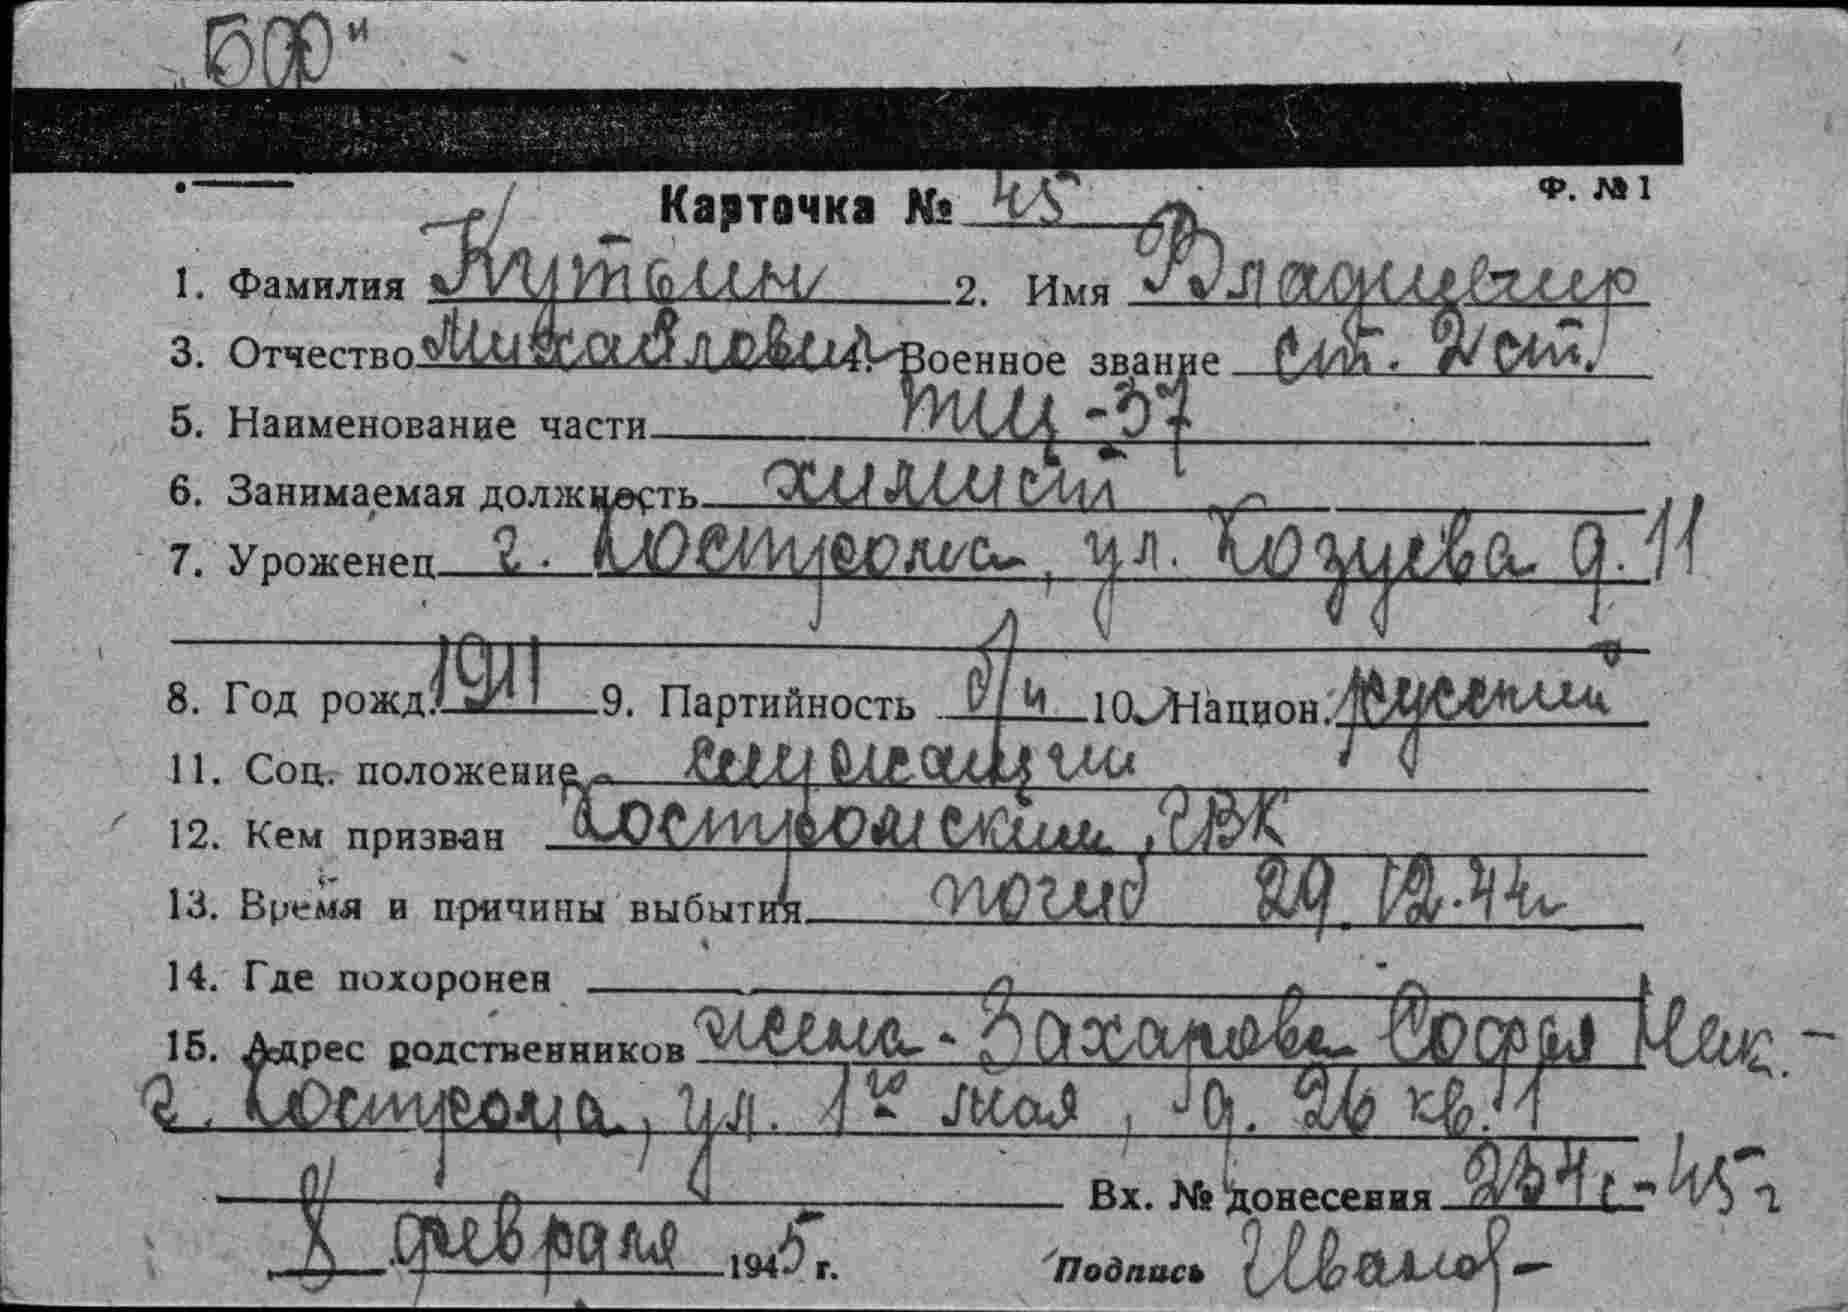 „БФ"
Карточка № 45
Ф. №1
1. Фамилия Кутьин 2. Имя Владимир
3. Отчество Михайлович 4. Военное звание ст. 2 ст.
5. Наименование части ТЩ-37
6. Занимаемая должность химист
7. Уроженец г. Кострома, ул. Козуева д. 11
8. Год рожд. 1911 9. Партийность б/п 10. Национ. русский
11. Соц. положение служащий
12. Кем призван Костромским ГВК
13. Время и причины выбытия погиб 29.12.44г
14. Где похоронен
15. Адрес родственников жена - Захарова Софья
г. Кострома, ул. 1го мая, д. 26 кв. 1
Вх. № донесения 234с-45г
8 февраля 1945 г. Подпись Иванов